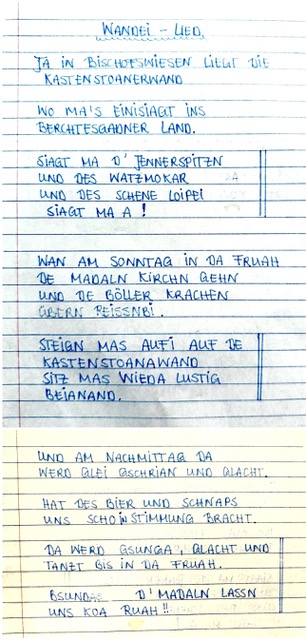 WANDEI - LIED.
JA IN BISCHOFSWIESEN LIEGT DIE
KASTENSTOANERWAND
WO MA'S EINISIAGT INS
BERCHTESGADNER LAND.
SIAGT MA D' JENNERSPITZN
UND DES WATZMOKAR
UND DES SCHENE LOIPEI
SIAGT MA A !
WAN AM SONNTAG IN DA FRUAH
DE MADALN KIRCHN GEHN
UND DE BÖLLER KRACHEN
ÜBERN
STEIGN MAS AUFI AUF DE
KASTENSTOANAWAND
SITZ MAS WIEDA LUSTIG
BEIANAND.
UND AM NACHMITTAG DA
WERD GLEI GSCHRIAN UND GLACHT.
HAT DES BIER UND SCHNAPS
UNS SCHO IN STIMMUNG BRACHT.
DA WERD GSUNGA, GLACHT UND
TANZT BIS IN DA FRUAH.
BSUNDAS D'MADALN LASSN
UNS KOA RUAH !!